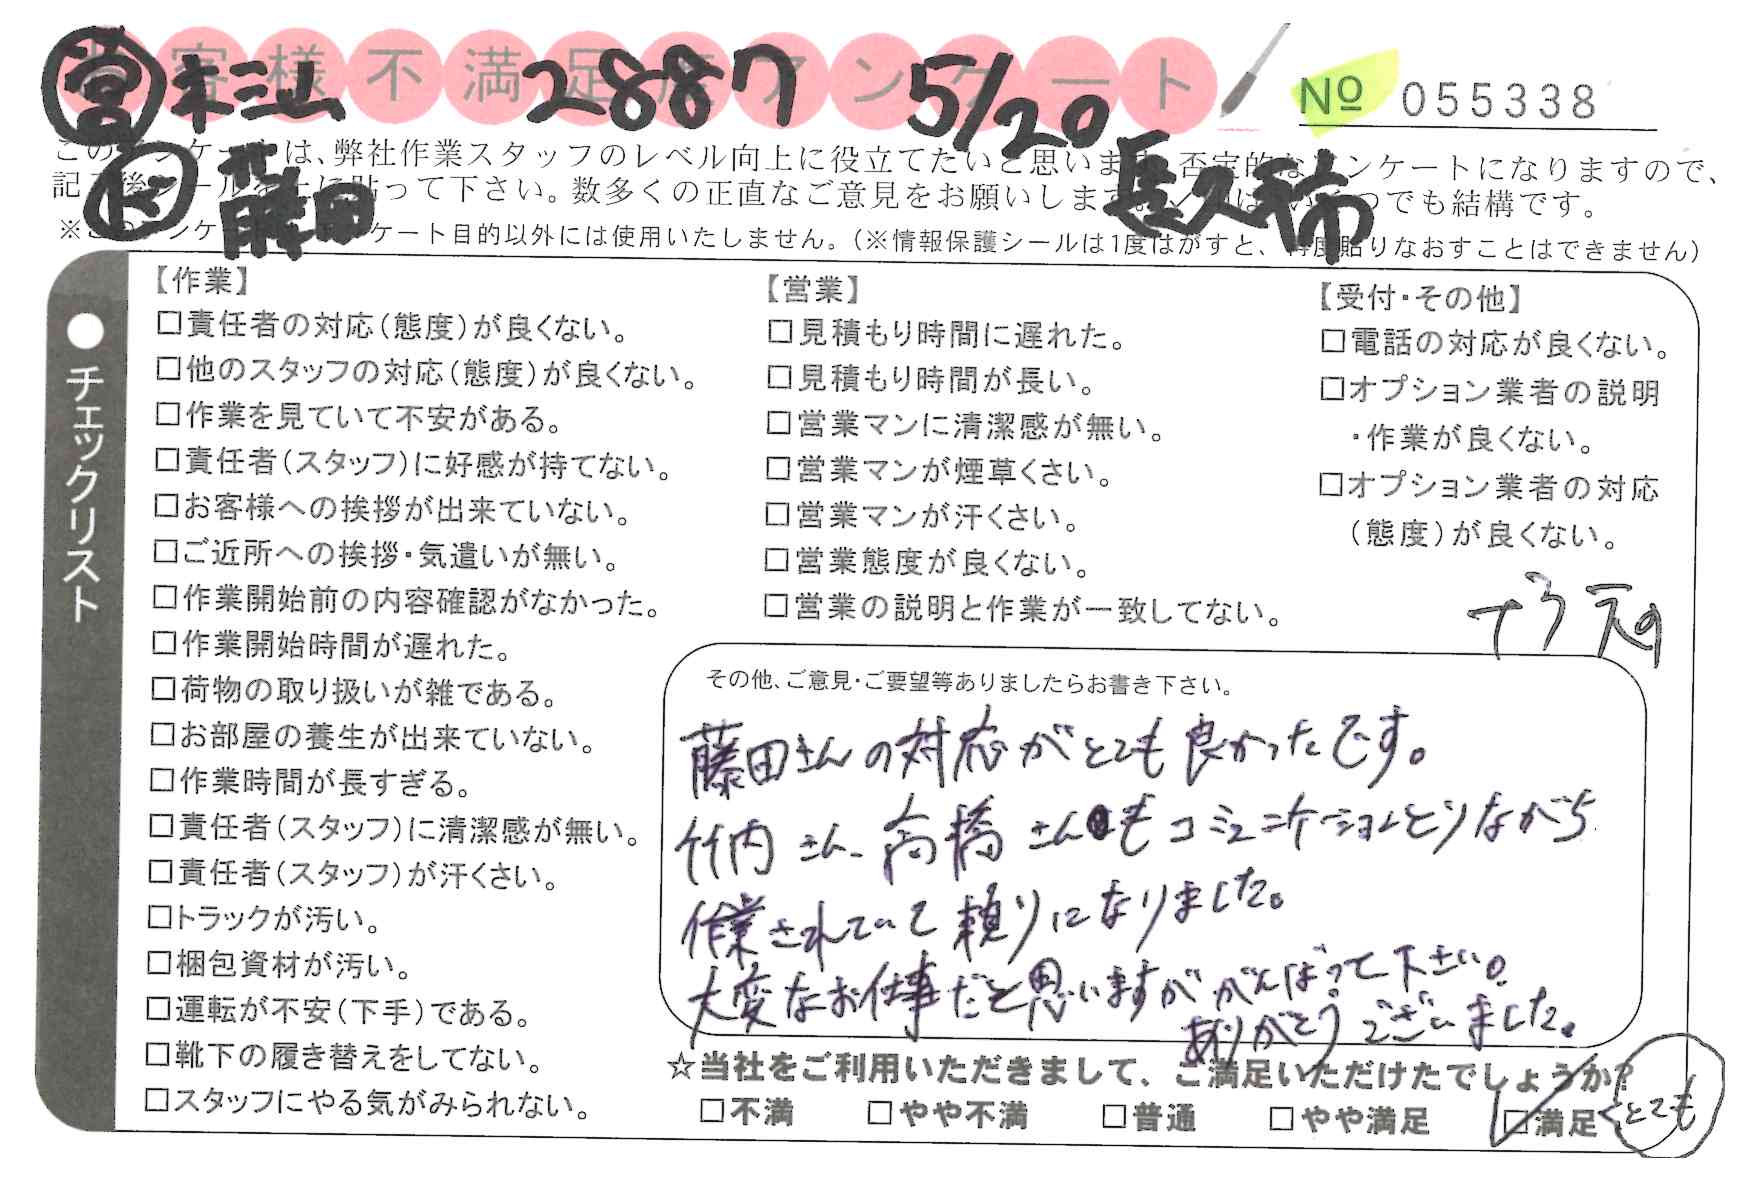 お客様不満足度アンケート
営 末三山 2887 5/20
No 055338
このアンケートは、弊社作業スタッフのレベル向上に役立てたいと思います。否定的なアンケートになりますので、
記 後シールを上に貼って下さい。数多くの正直なご意見をお願いします。 いつでも結構です。
藤田 長久 希
※このアンケート ケート目的以外には使用いたしません。(※情報保護シールは1度はがすと、再度貼りなおすことはできません)
●チェックリスト
【作業】
□責任者の対応(態度)が良くない。
□他のスタッフの対応(態度)が良くない。
□作業を見ていて不安がある。
□責任者(スタッフ)に好感が持てない。
□お客様への挨拶が出来ていない。
□ご近所への挨拶・気遣いが無い。
□作業開始前の内容確認がなかった。
□作業開始時間が遅れた。
□荷物の取り扱いが雑である。
□お部屋の養生が出来ていない。
□作業時間が長すぎる。
□責任者(スタッフ)に清潔感が無い。
□責任者(スタッフ)が汗くさい。
□トラックが汚い。
□梱包資材が汚い。
□運転が不安(下手)である。
□靴下の履き替えをしてない。
□スタッフにやる気がみられない。
【営業】
□見積もり時間に遅れた。
□見積もり時間が長い。
□営業マンに清潔感が無い。
□営業マンが煙草くさい。
□営業マンが汗くさい。
□営業態度が良くない。
□営業の説明と作業が一致してない。
【受付・その他】
□電話の対応が良くない。
□オプション業者の説明
・作業が良くない。
□オプション業者の対応
(態度)が良くない。
その他、ご意見・ご要望等ありましたらお書き下さい。
藤田さんの対応がとても良かったです。
竹内さん、高橋さんもコミュニケーションとりながら
作業されていて頼りになりました。
大変なお仕事だと思いますががんばって下さい。
ありがとうございました。
☆当社をご利用いただきまして、ご満足いただけたでしょうか?
□不満 □やや不満 □普通 □やや満足 □満足 とても